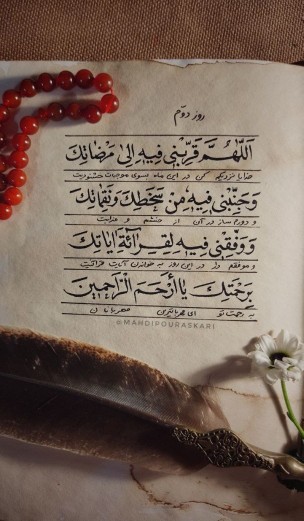 روز دوّم
اَللّهُمَّ قَرِّبْنی فیهِ اِلی مَرْضاتِكَ
خدایا نزدیکم کن در این ماه بسوی موجبات خشنودیت
وَجَنِّبْنی فیهِ مِنْ سَخَطِكَ وَنَقِماتِكَ
و دورم ساز در آن از خشم و عذابت
وَوَفِّقْنی فیهِ لِقِرآئَةِ ایاتِكَ
و موفقم دار در این روز به خواندن آیات قرآنیت
بِرَحْمَتِكَ یا اَرْحَمَ الرّاحِمینَ
به رحمت تو ای مهربانترین مهربانان
@MAHDIPOURASKARI